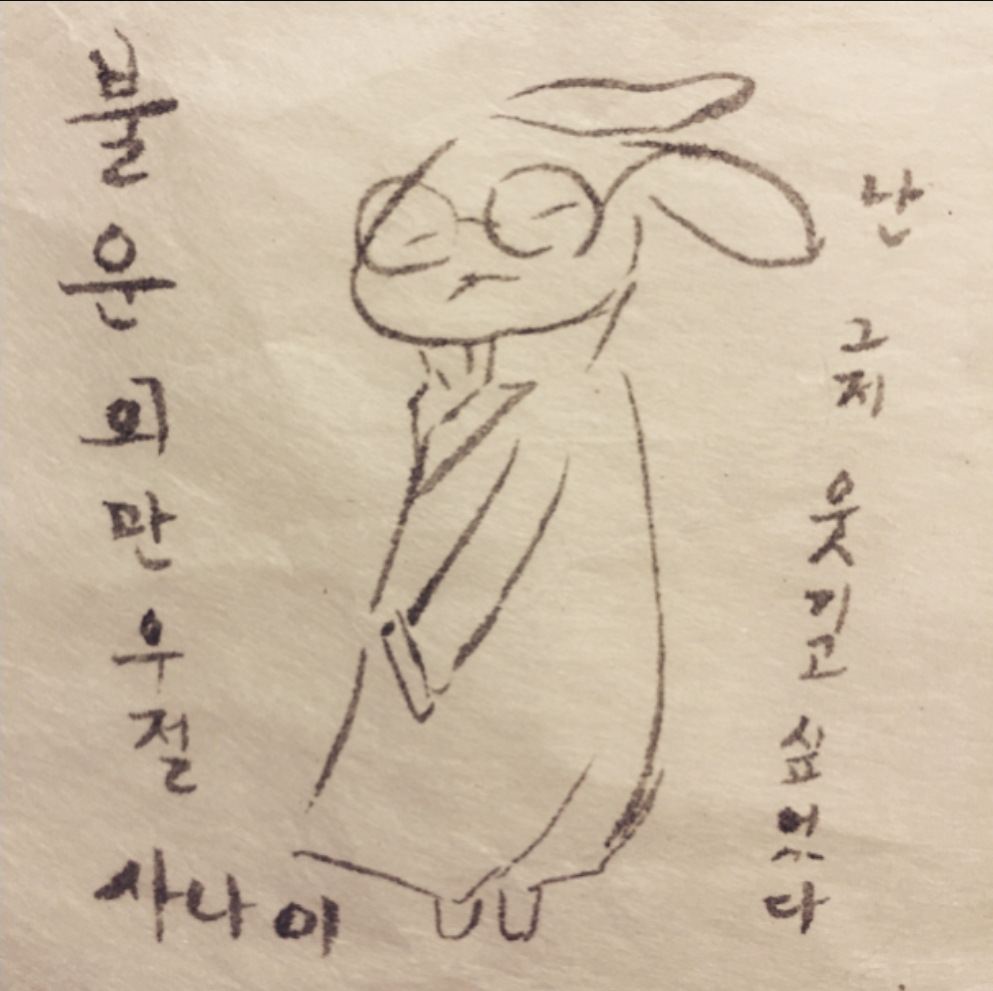 불운의만우절
사나이
난 그저 웃기고 싶었다